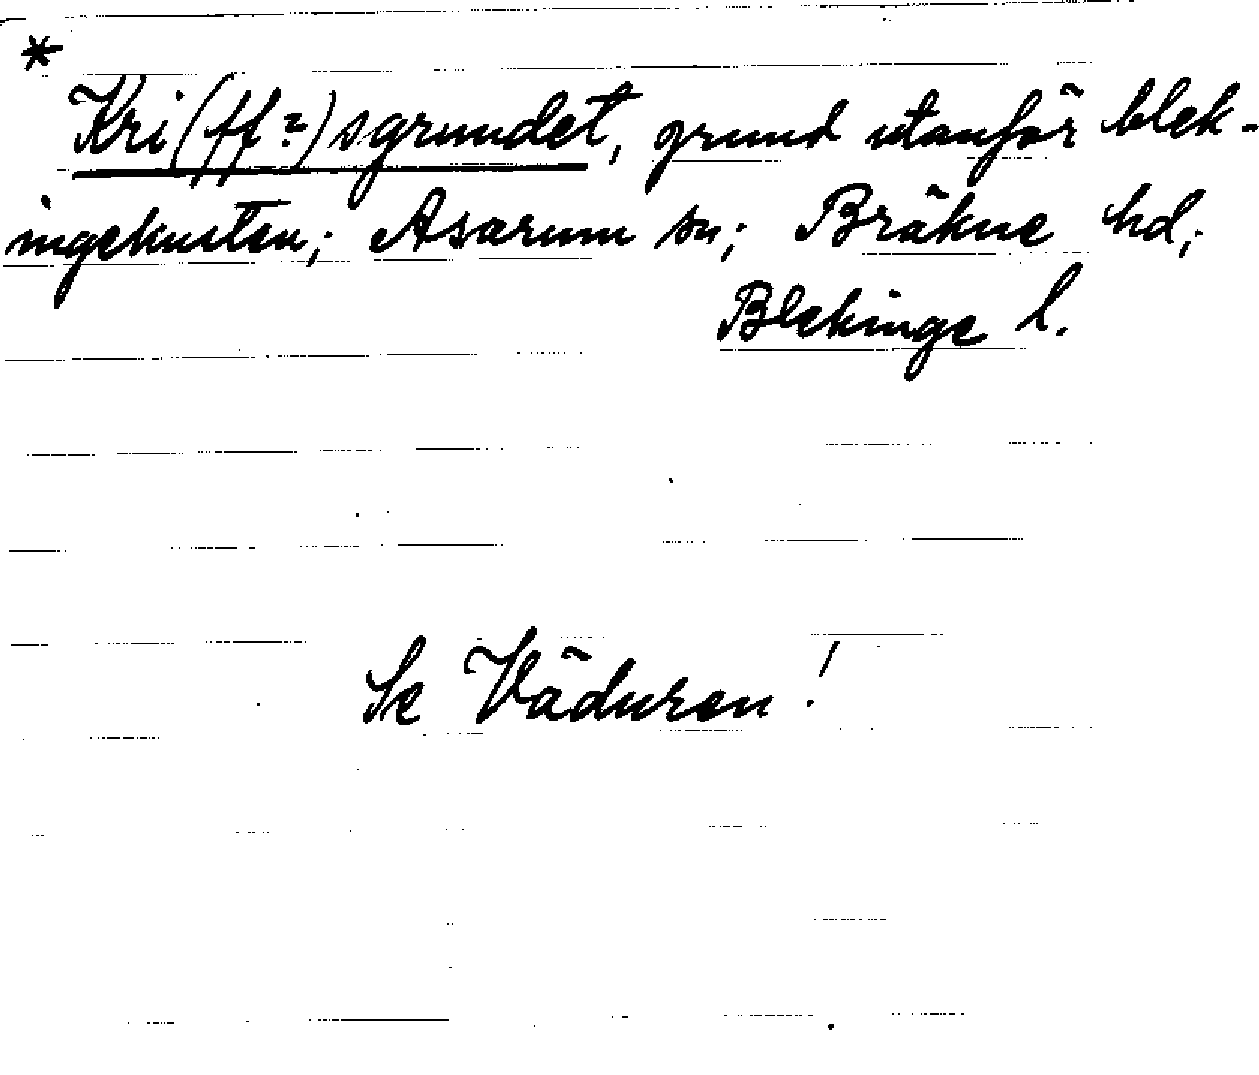 *
Kri(ff?)sgrundet, grund utanför blek-
ingekusten; Asarum sn; Bräkne hd;
Blekinge l.
Se Väduren!